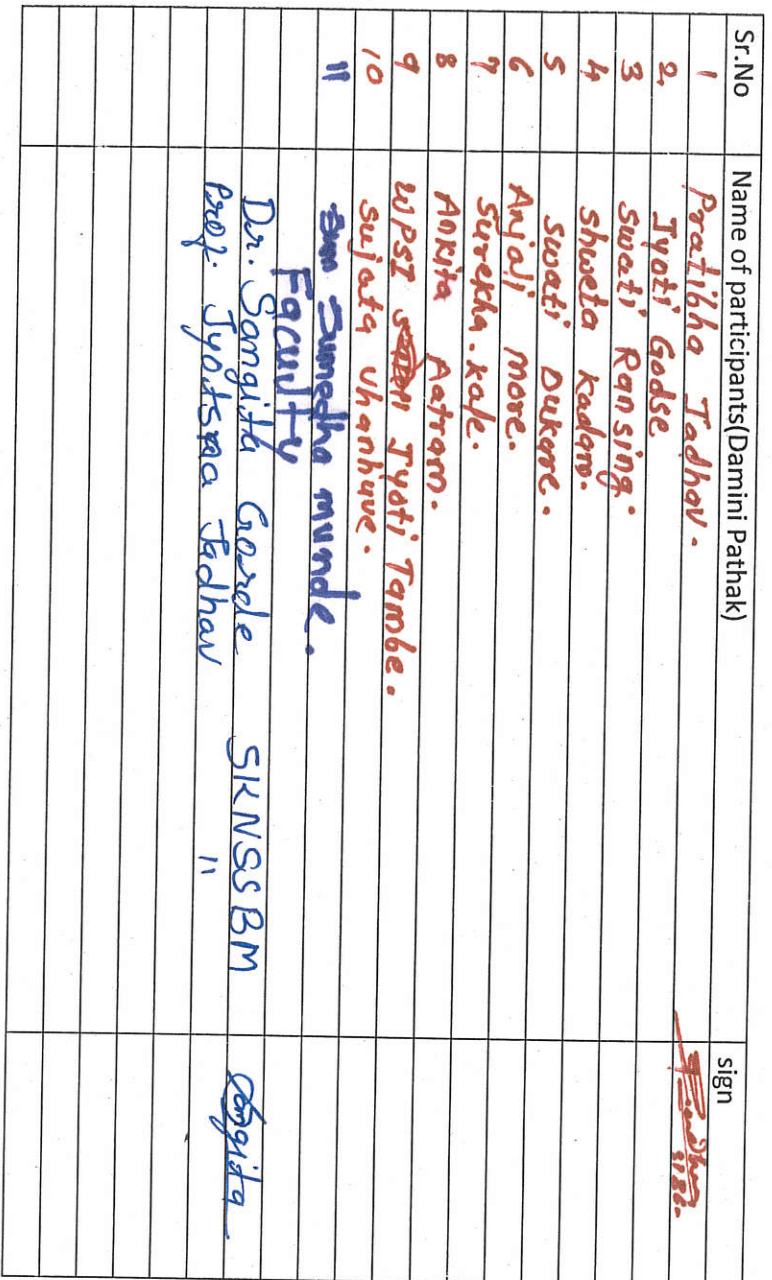 Sr.No Name of participants(Damini Pathak) sign
1 Pratibha Jadhav.
2. Jyoti Godse
3 Swati Ransing.
4 Shweta Kadam.
5 Swati Dukare.
6 Anjali More.
7 Surekha. Kale.
8 Ankita Aatram.
9 WPSI Jyoti Tambe.
10 Sujata Vhanhuve.
11 Sumedha Munde.
Faculty
Dr. Sangita Gorde SKNSSBM Sangita
Prof. Jyotsna Jadhav 11